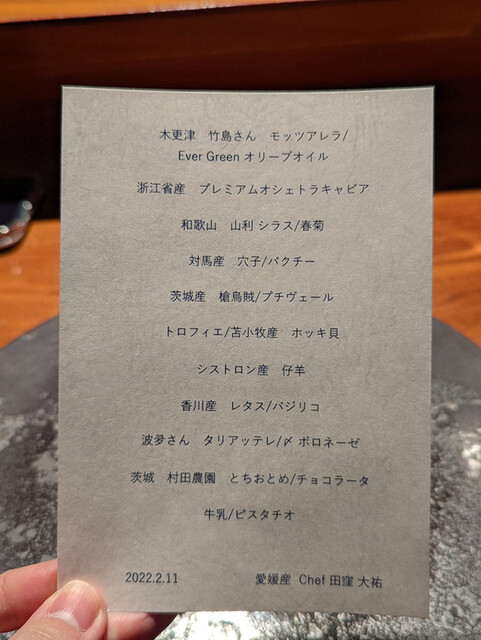 木更津　竹島さん　モッツアレラ/
Ever Green オリーブオイル
浙江省産　プレミアムオシェトラキャビア
和歌山　山利 シラス/春菊
対馬産　穴子/パクチー
茨城産　槍烏賊/プチヴェール
トロフィエ/苫小牧産　ホッキ貝
シストロン産　仔羊
香川産　レタス/バジリコ
波夛さん　タリアッテレ/〆 ボロネーゼ
茨城　村田農園　とちおとめ/チョコラータ
牛乳/ピスタチオ
2022.2.11　愛媛産 Chef 田窪 大祐